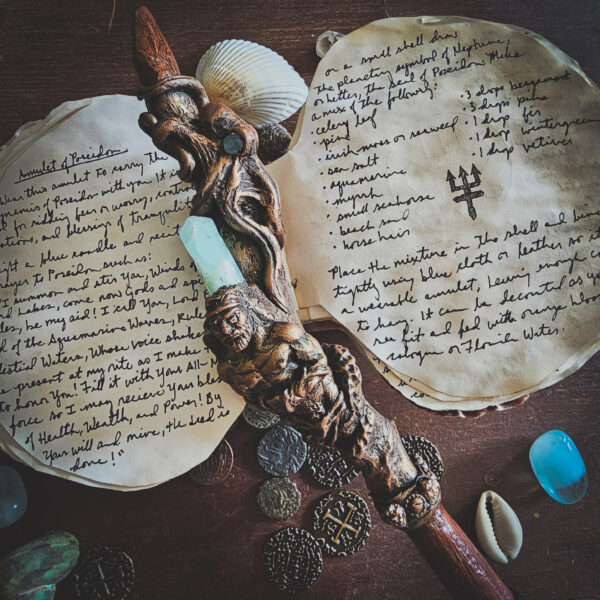 Amulet of Poseidon
Wear this amulet to carry the
of Poseidon with you. It is
for ridding fees or worry,
and blessing of tranquility
a blue candle and
to Poseidon such as:
I summon and stir You, Winds
and Lakes, come now Gods and
be my aid! I call You, Lord
of the Aquamarine Waves,
Waters, Whose voice
present at my rite as I make
to honor You! Fill it with Your All-
force so I may recieve Your
of Health, Wealth, and Power! By
Your will and mine, the deed is
done!"
on a small shell draw
the planetary symbol of Neptune,
or better, the seal of Poseidon. Make
a mix of the following:
• celery leaf
• pine
• irish moss or seaweed
• sea salt
• aquamarine
• myrrh
• small seahorse
• beach sand
• horse hair
• 3 drops bergamot
• 3 drops pine
• 1 drop fir
• 1 drop wintergreen
• 1 drop vetiver
Place the mixture in the shell and bind
tightly using blue cloth or leather so it
a wearable amulet, leaving enough
to hang. It can be decorated as you
see fit and fed with orange
cologne or Florida Water.